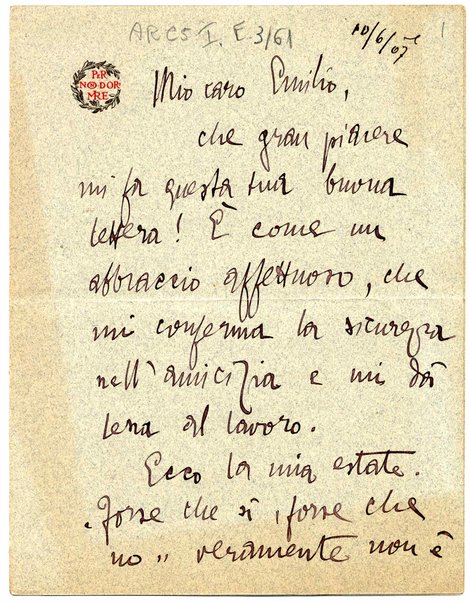 ARCS I. E. 3/61
10/6/07
1
PER
NON DOR
MIRE
Mio caro Emilio,
che gran piacere
mi fa questa tua buona
lettera! È come un
abbraccio affettuoso, che
mi conferma la sicurezza
nell'amicizia e mi dà
lena al lavoro.
Ecco la mia estate.
"Forse che sì, forse che
no" veramente non è